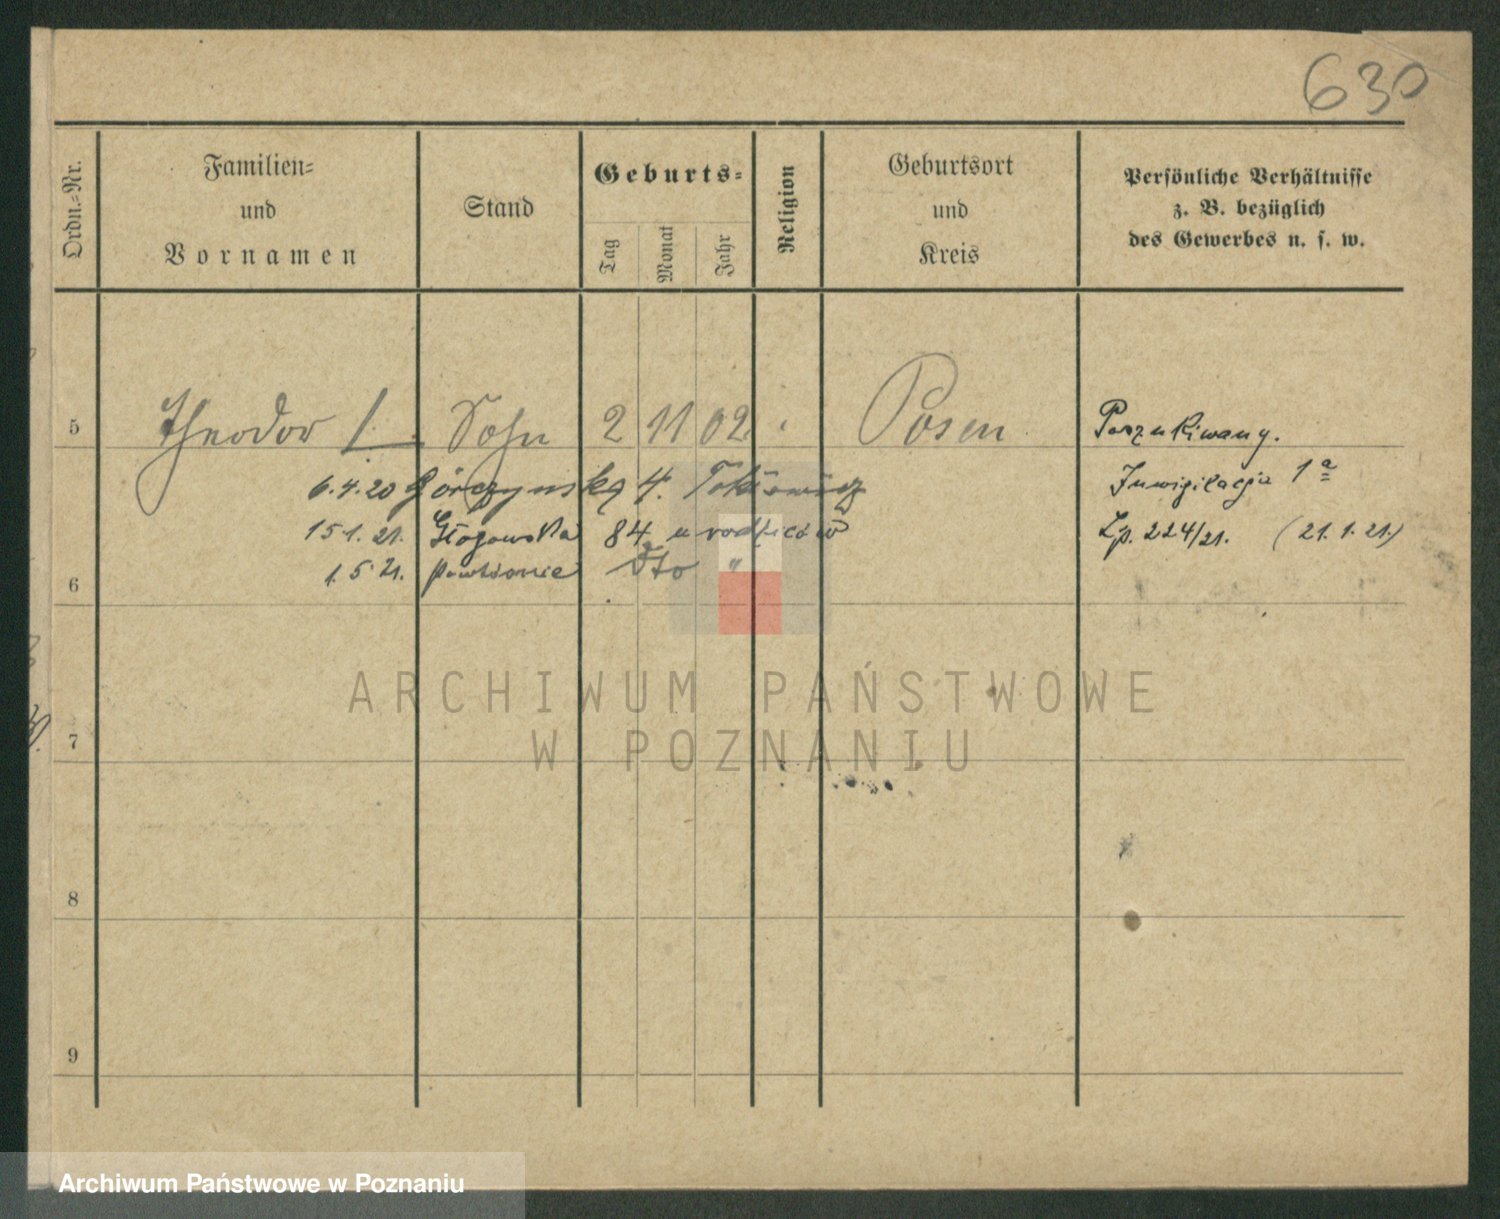 630
Ordn.-Nr.
Familien-
und
Vornamen
Stand
Geburts-
Tag
Monat
Jahr
Religion
Geburtsort
und
Kreis
Persönliche Verhältnisse
z. B. bezüglich
des Gewerbes u. s. w.
5 Theodor Sohn 2 11 02 Posen Poszukiwany.
6.4.20 Górczyńska 4. Inwigilacja 1a
15.1.21. Głogowska 84 u rodziców Lp. 224/21. (21.1.21.)
6 1.5.21. powtórnie dto "
7
8
9
ARCHIWUM PAŃSTWOWE
W POZNANIU
Archiwum Państwowe w Poznaniu